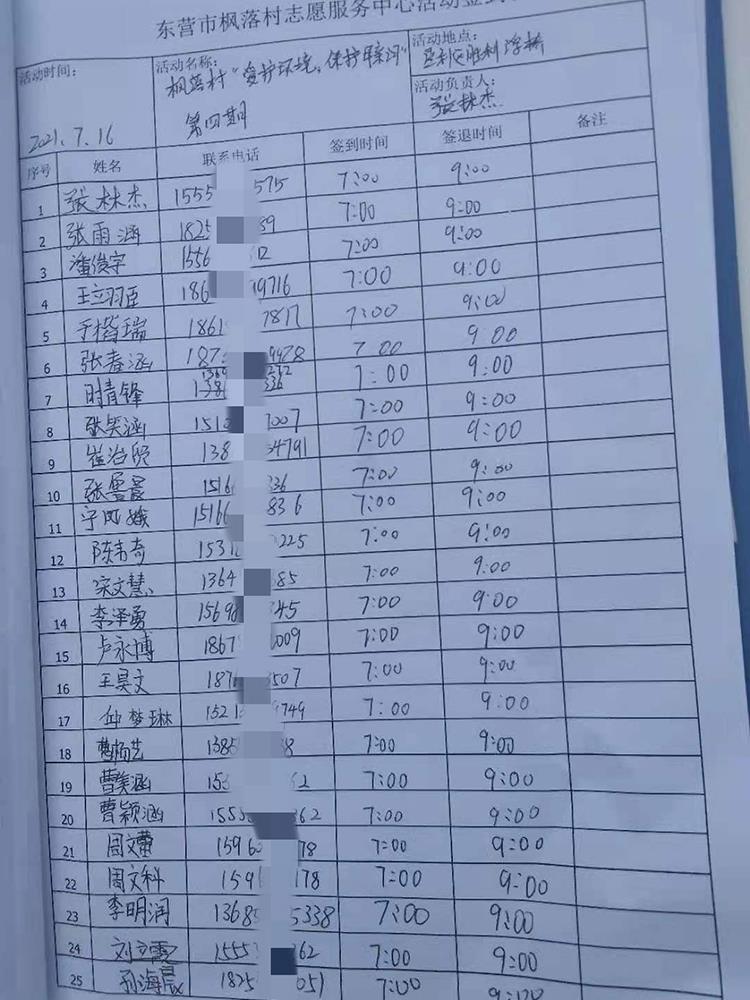 东营市枫落村志愿服务中心活动签到
活动时间: 2021.7.16
活动名称: 枫落村"爱护环境,保护母亲河" 第四期
活动地点: 垦利区胜利浮桥
活动负责人: 张林杰
序号 姓名 联系电话 签到时间 签退时间 备注
1 张林杰 1555 575 7:00 9:00
2 张雨涵 1825 89 7:00 9:00
3 潘俊宇 1556 12 7:00 9:00
4 王立羽臣 186 9716 7:00 9:00
5 于楷瑞 1861 7817 7:00 9:00
6 张春涵 187 9478 7:00 9:00
7 时青锋 138 336 7:00 9:00
8 张笑涵 151 7007 7:00 9:00
9 崔治贸 138 34791 7:00 9:00
10 张雲晨 1516 336 7:00 9:00
11 宁凤娥 15166 836 7:00 9:00
12 陈韦奇 1531 225 7:00 9:00
13 宗文慧 1364 85 7:00 9:00
14 李泽勇 15698 345 7:00 9:00
15 卢永博 1867 009 7:00 9:00
16 王昊文 187 3507 7:00 9:00
17 仲梦琳 1521 9749 7:00 9:00
18 曹杨艺 1385 8 7:00 9:00
19 曹美涵 153 62 7:00 9:00
20 曹颖涵 1555 362 7:00 9:00
21 周文蕾 1596 78 7:00 9:00
22 周文科 1596 178 7:00 9:00
23 李明润 1368 5338 7:00 9:00
24 刘立霞 1555 362 7:00 9:00
25 孙海晨 1825 051 7:00 9:00